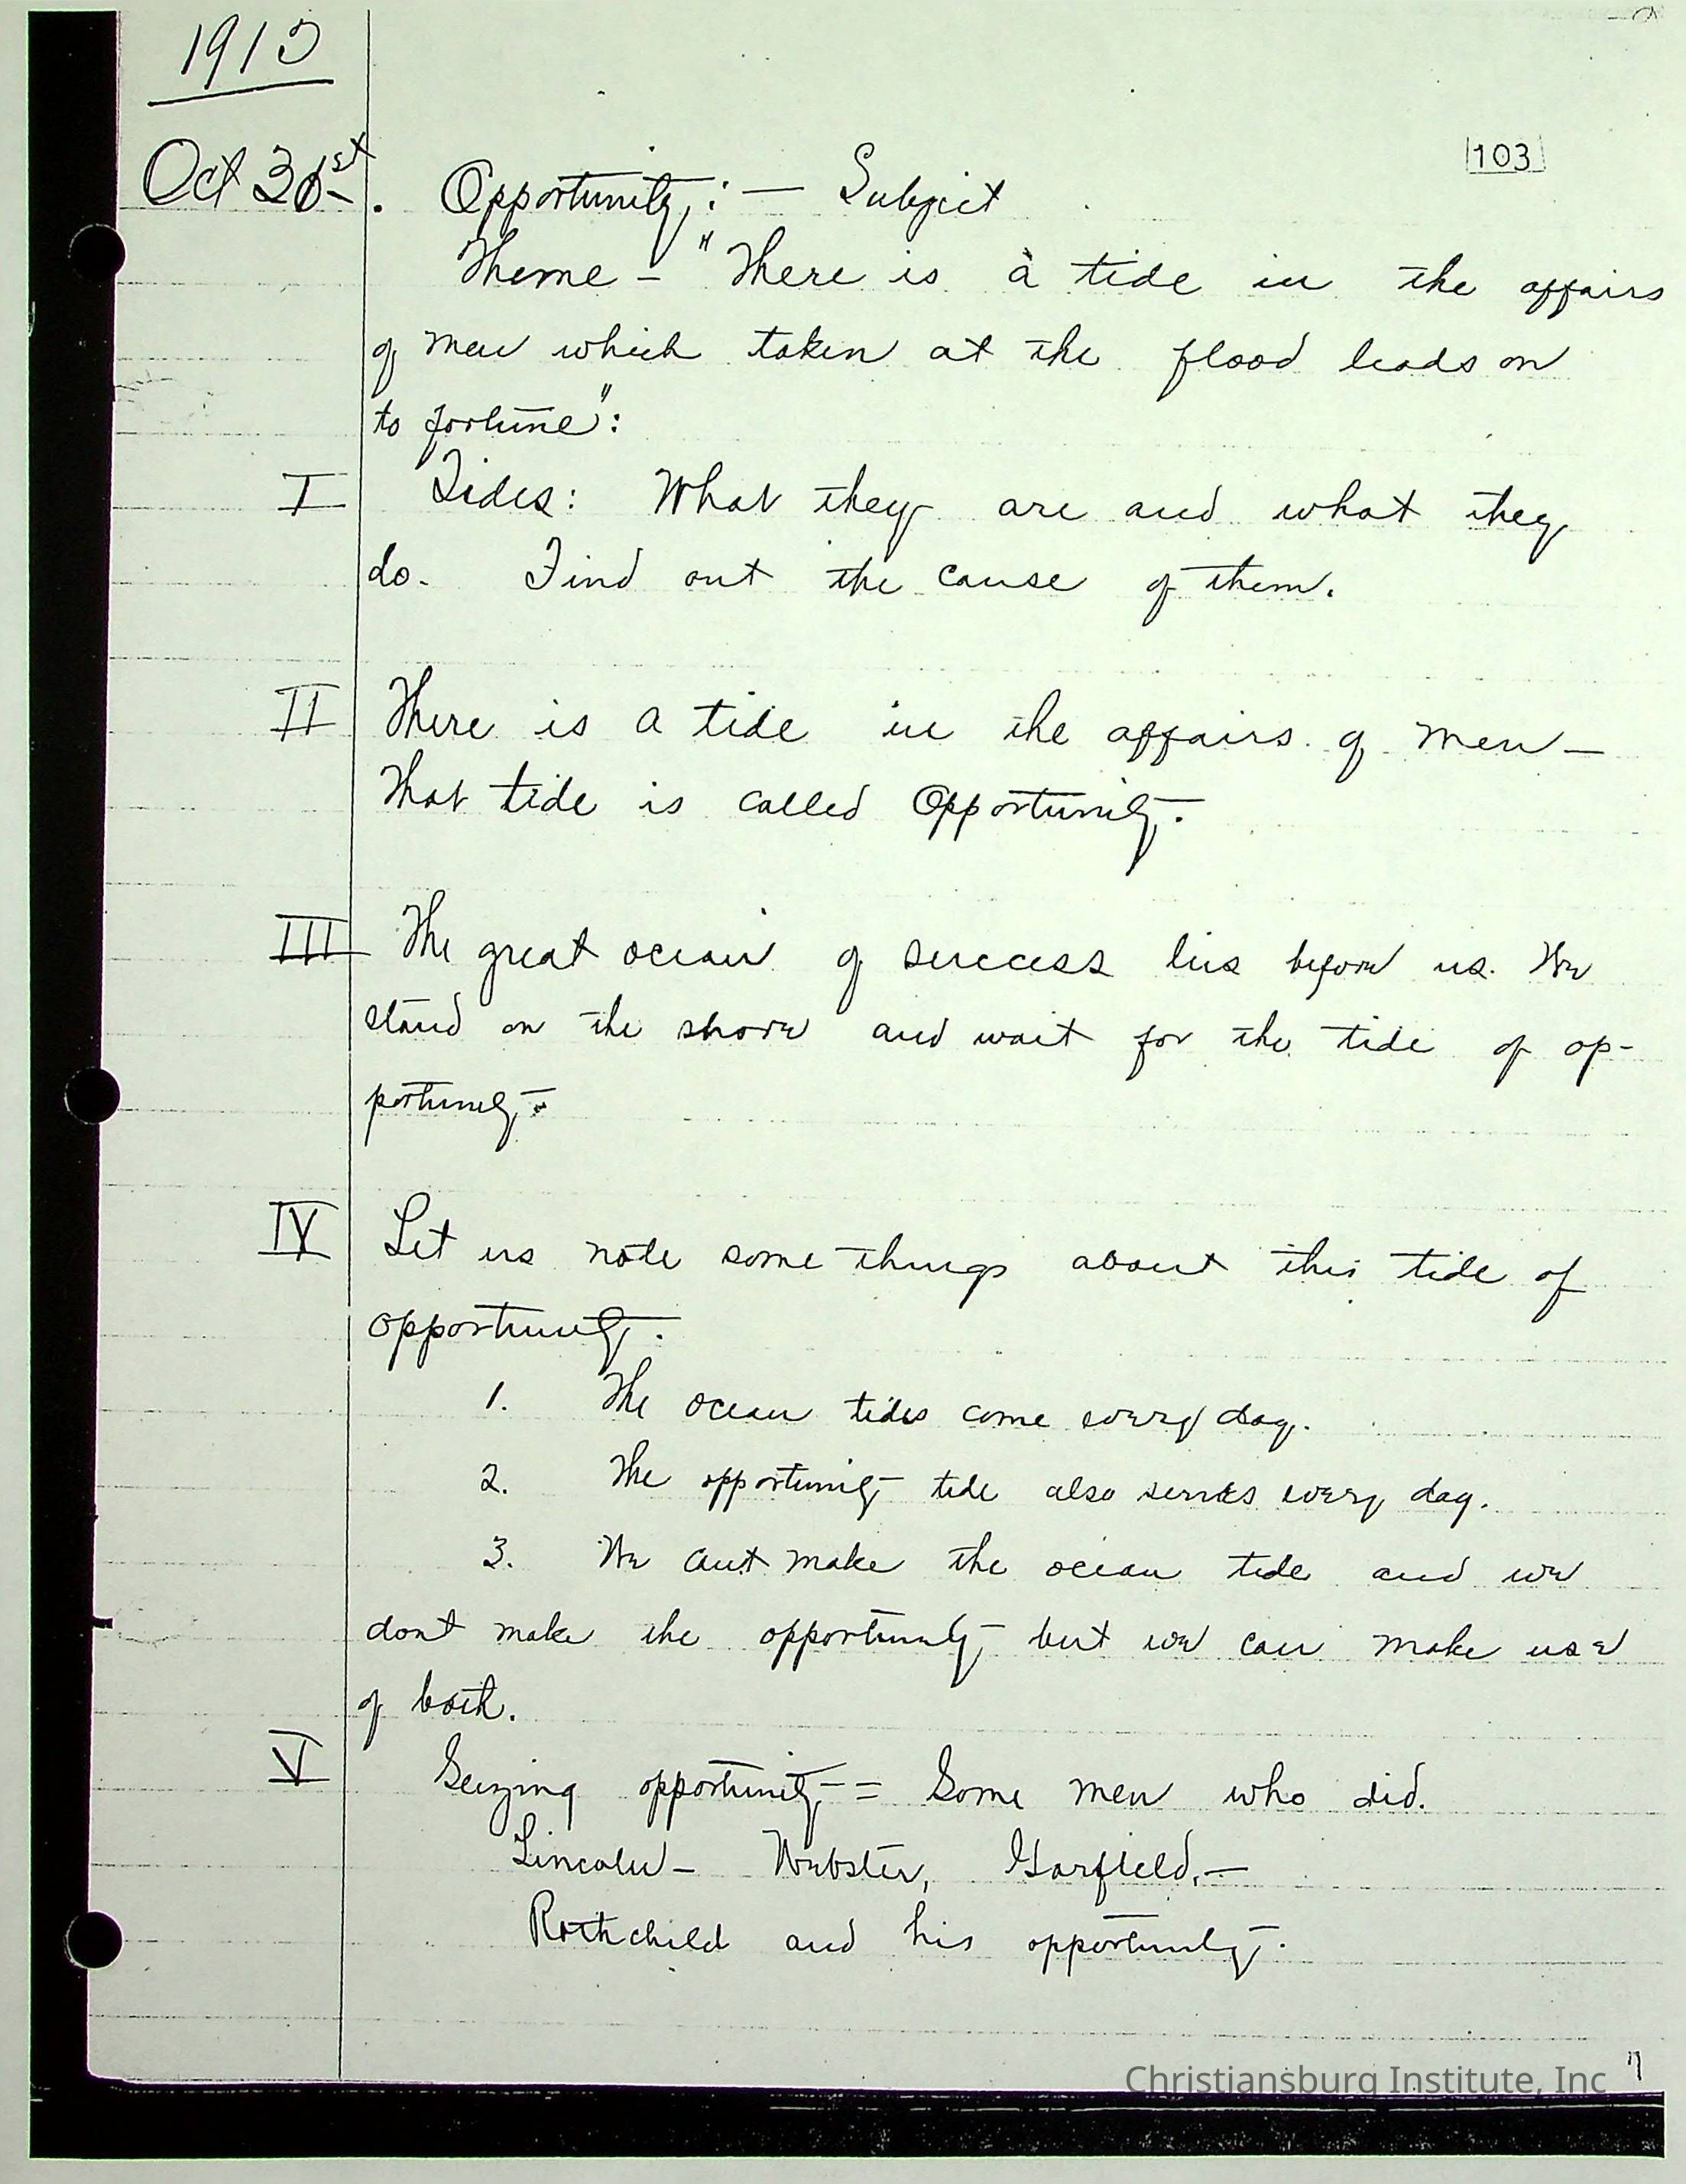 1915
103
Oct 31st. Opportunity: — Subject
Theme - "There is a tide in the affairs
of men which taken at the flood leads on
to fortune":
I Tides: What they are and what they
do. Find out the cause of them.
II There is a tide in the affairs of men —
That tide is called Opportunity.
III The great ocean of success lies before us. We
stand on the shore and wait for the tide of op-
portunity.
IV Let us note some things about this tide of
opportunity.
1. The ocean tides come every day.
2. The opportunity tide also every day.
3. We cant make the ocean tide and we
dont make the opportunity but we can make use
of both.
V Seizing opportunity = Some men who did.
Lincoln - Webster, Garfield, —
Rothchild and his opportunity.
Christiansburg Institute, Inc